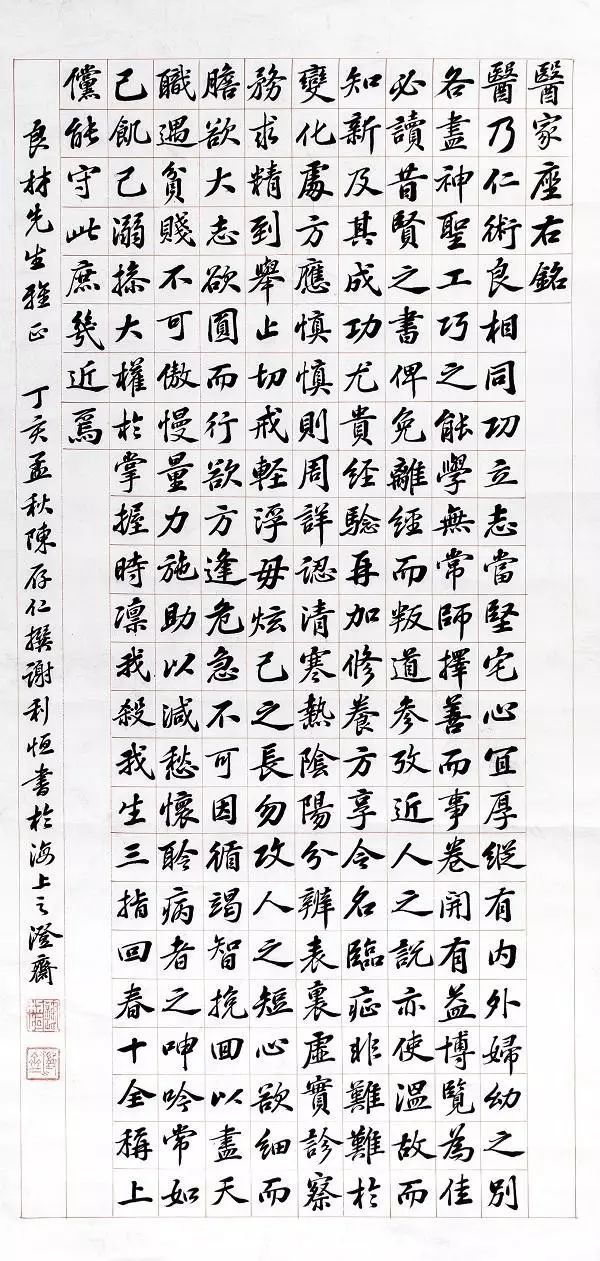 醫家座右銘
醫乃仁術良相同功立志當堅宅心宜厚縱有內外婦幼之別
各盡神聖工巧之能學無常師擇善而事卷開有益博覽為佳
必讀昔賢之書俾免離經而叛道參攷近人之說亦使溫故而
知新及其成功尤貴經驗再加修養方享令名臨症非難難於
變化處方應慎慎則周詳認清寒熱陰陽分辨表裏虛實診察
務求精到舉止切戒輕浮毋炫己之長勿攻人之短心欲細而
膽欲大志欲圓而行欲方逢危急不可因循竭智挽回以盡天
職遇貧賤不可傲慢量力施助以減愁懷聆病者之呻吟常如
己飢己溺操大權於掌握時凜我殺我生三指回春十全稱上
儻能守此庶幾近焉
良材先生雅正 丁亥孟秋陳存仁撰謝利恒書於海上之澄齋